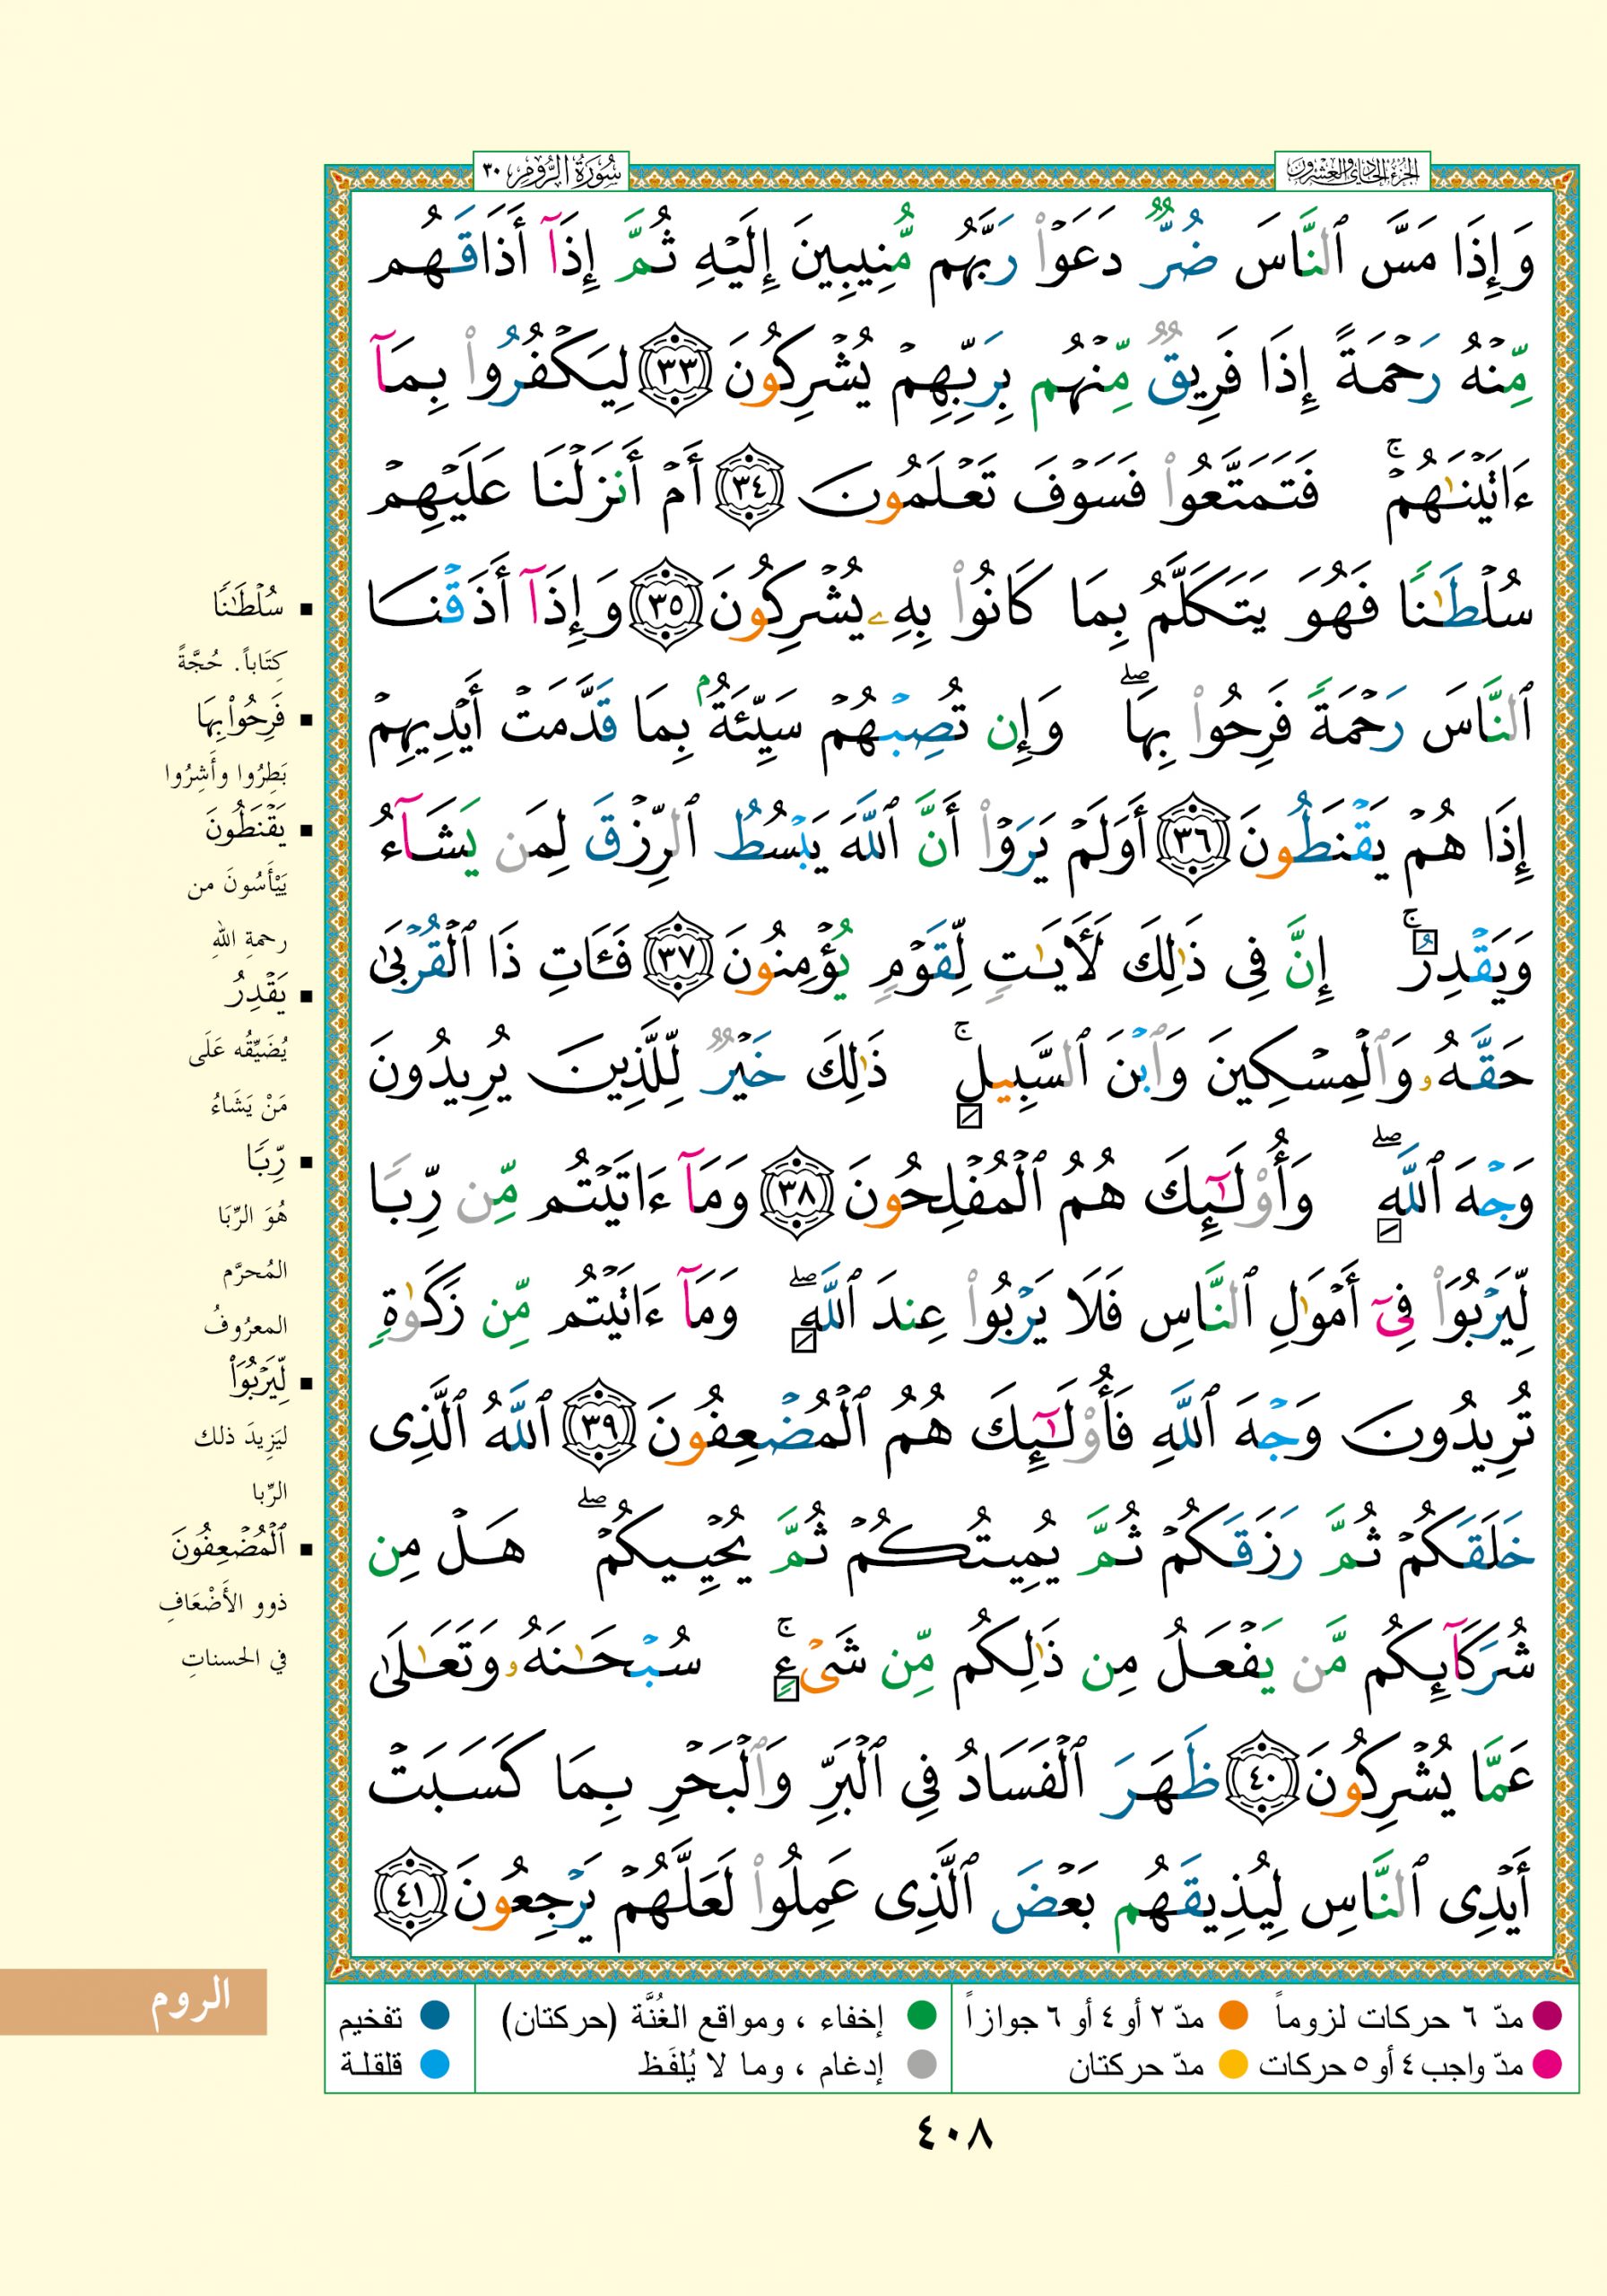 الجزء الحادي والعشرون
سُورَةُ الرُّومِ ٣٠
وَإِذَا مَسَّ ٱلنَّاسَ ضُرٌّ دَعَوْا۟ رَبَّهُم مُّنِيبِينَ إِلَيْهِ ثُمَّ إِذَآ أَذَاقَهُم
مِّنْهُ رَحْمَةً إِذَا فَرِيقٌ مِّنْهُم بِرَبِّهِمْ يُشْرِكُونَ ٣٣ لِيَكْفُرُوا۟ بِمَآ
ءَاتَيْنَٰهُمْ ۚ فَتَمَتَّعُوا۟ فَسَوْفَ تَعْلَمُونَ ٣٤ أَمْ أَنزَلْنَا عَلَيْهِمْ
سُلْطَٰنًا فَهُوَ يَتَكَلَّمُ بِمَا كَانُوا۟ بِهِۦ يُشْرِكُونَ ٣٥ وَإِذَآ أَذَقْنَا
ٱلنَّاسَ رَحْمَةً فَرِحُوا۟ بِهَا ۖ وَإِن تُصِبْهُمْ سَيِّئَةٌۢ بِمَا قَدَّمَتْ أَيْدِيهِمْ
إِذَا هُمْ يَقْنَطُونَ ٣٦ أَوَلَمْ يَرَوْا۟ أَنَّ ٱللَّهَ يَبْسُطُ ٱلرِّزْقَ لِمَن يَشَآءُ
وَيَقْدِرُ ۚ إِنَّ فِى ذَٰلِكَ لَءَايَٰتٍ لِّقَوْمٍ يُؤْمِنُونَ ٣٧ فَـَٔاتِ ذَا ٱلْقُرْبَىٰ
حَقَّهُۥ وَٱلْمِسْكِينَ وَٱبْنَ ٱلسَّبِيلِ ۚ ذَٰلِكَ خَيْرٌ لِّلَّذِينَ يُرِيدُونَ
وَجْهَ ٱللَّهِ ۖ وَأُو۟لَٰٓئِكَ هُمُ ٱلْمُفْلِحُونَ ٣٨ وَمَآ ءَاتَيْتُم مِّن رِّبًا
لِّيَرْبُوَا۟ فِىٓ أَمْوَٰلِ ٱلنَّاسِ فَلَا يَرْبُوا۟ عِندَ ٱللَّهِ ۖ وَمَآ ءَاتَيْتُم مِّن زَكَوٰةٍ
تُرِيدُونَ وَجْهَ ٱللَّهِ فَأُو۟لَٰٓئِكَ هُمُ ٱلْمُضْعِفُونَ ٣٩ ٱللَّهُ ٱلَّذِى
خَلَقَكُمْ ثُمَّ رَزَقَكُمْ ثُمَّ يُمِيتُكُمْ ثُمَّ يُحْيِيكُمْ ۖ هَلْ مِن
شُرَكَآئِكُم مَّن يَفْعَلُ مِن ذَٰلِكُم مِّن شَىْءٍ ۚ سُبْحَٰنَهُۥ وَتَعَٰلَىٰ
عَمَّا يُشْرِكُونَ ٤٠ ظَهَرَ ٱلْفَسَادُ فِى ٱلْبَرِّ وَٱلْبَحْرِ بِمَا كَسَبَتْ
أَيْدِى ٱلنَّاسِ لِيُذِيقَهُم بَعْضَ ٱلَّذِى عَمِلُوا۟ لَعَلَّهُمْ يَرْجِعُونَ ٤١
سُلْطَٰنًا
كِتَاباً. حُجَّةً
فَرِحُوا۟ بِهَا
بَطِرُوا وأَشِرُوا
يَقْنَطُونَ
يَيْأَسُونَ من
رحمةِ اللهِ
يَقْدِرُ
يُضَيِّقُه عَلَى
مَنْ يَشَاءُ
رِّبًا
هُوَ الرِّبَا
المُحرَّم
المعرُوفُ
لِّيَرْبُوَا۟
ليَزِيدَ ذلك
الرِّبا
ٱلْمُضْعِفُونَ
ذوو الأَضْعَافِ
في الحسناتِ
الروم
مدّ ٦ حركات لزوماً مدّ ٢ أو ٤ أو ٦ جوازاً إخفاء ، ومواقع الغُنَّة (حركتان) تفخيم
مدّ واجب ٤ أو ٥ حركات مدّ حركتان إدغام ، وما لا يُلفَظ قلقلة
٤٠٨